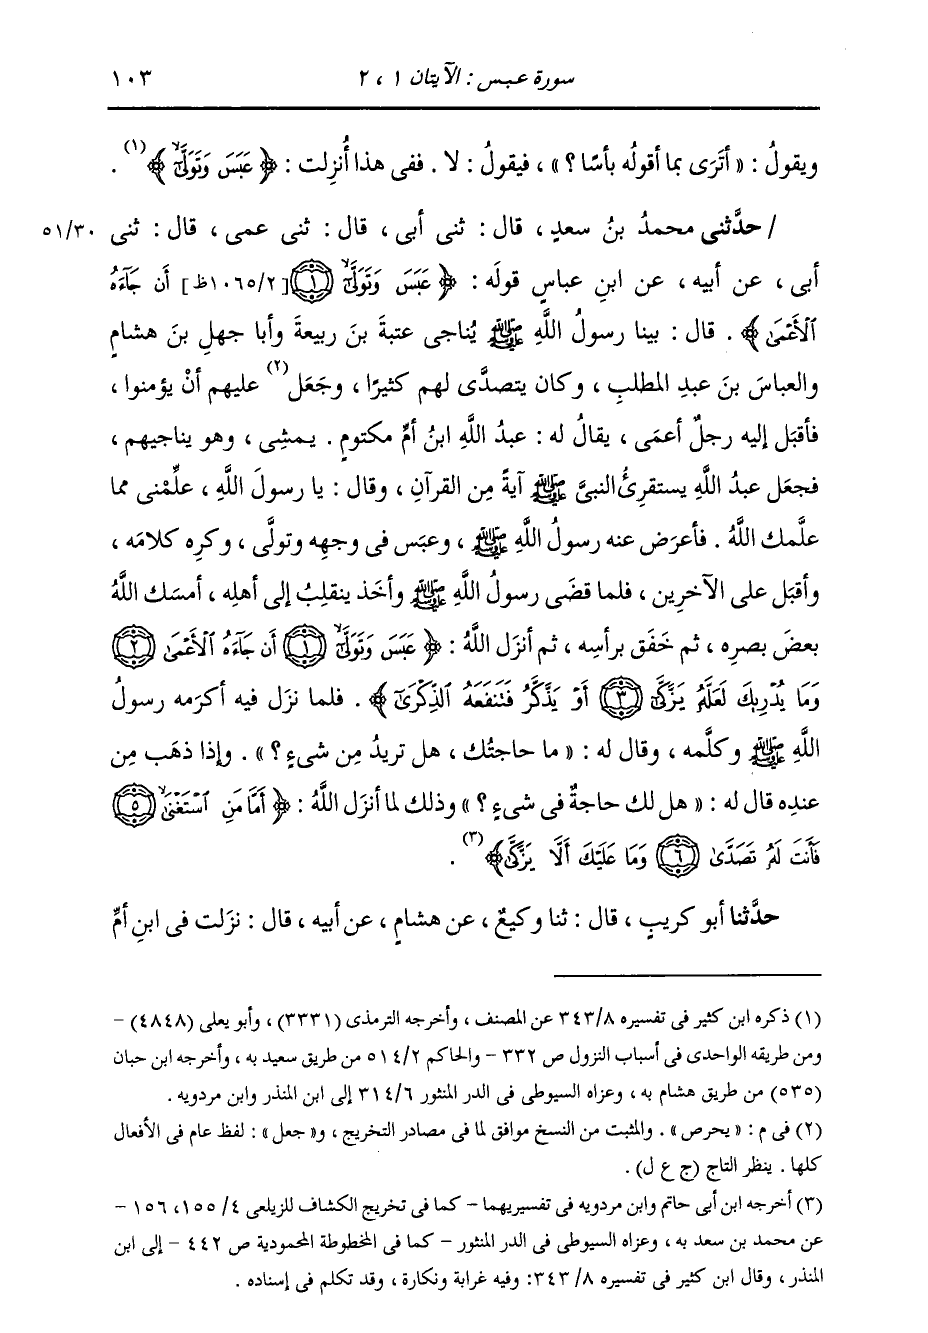 سورة عبس : الآيتان ١ ، ٢ ١٠٣
ويقولُ : « أتَرَى بما أقولُه بأسًا ؟ » ، فيقولُ : لا . ففى هذا أُنزِلت : ﴿ عَبَسَ وَتَوَلَّىٰٓ ﴾(١) .
/ حدَّثنى محمدُ بنُ سعدٍ ، قال : ثنى أبى ، قال : ثنى عمى ، قال : ثنى ٥١/٣٠
أبى ، عن أبيه ، عن ابنِ عباسٍ قولَه : ﴿ عَبَسَ وَتَوَلَّىٰٓ ۝١ [١٠٦٥/٢ظ] أَن جَآءَهُ
ٱلْأَعْمَىٰ ﴾ . قال : بينا رسولُ اللَّهِ ﷺ يُناجى عتبةَ بنَ ربيعةَ وأبا جهلِ بنَ هشامٍ
والعباسَ بنَ عبدِ المطلبِ ، وكان يتصدَّى لهم كثيرًا ، وجَعَل(٢) عليهم أنْ يؤمنوا ،
فأقبَل إليه رجلٌ أعمَى ، يقالُ له : عبدُ اللَّهِ ابنُ أمِّ مكتومٍ . يمشِى ، وهو يناجيهم ،
فجعَل عبدُ اللَّهِ يستقرِئُ النبىَّ ﷺ آيةً مِن القرآنِ ، وقال : يا رسولَ اللَّهِ ، علِّمْنى مما
علَّمك اللَّهُ . فأعرَض عنه رسولُ اللَّهِ ﷺ ، وعبَس فى وجهِه وتولَّى ، وكرِه كلامَه ،
وأقبَل على الآخرِين ، فلما قضَى رسولُ اللَّهِ ﷺ وأخَذ ينقلِبُ إلى أهلِه ، أمسَك اللَّهُ
بعضَ بصرِه ، ثم خَفَق برأسِه ، ثم أنزَل اللَّهُ : ﴿ عَبَسَ وَتَوَلَّىٰٓ ۝١ أَن جَآءَهُ ٱلْأَعْمَىٰ ۝٢
وَمَا يُدْرِيكَ لَعَلَّهُۥ يَزَّكَّىٰٓ ۝٣ أَوْ يَذَّكَّرُ فَتَنفَعَهُ ٱلذِّكْرَىٰٓ ﴾ . فلما نزَل فيه أكرَمه رسولُ
اللَّهِ ﷺ وكلَّمه ، وقال له : « ما حاجتُك ، هل تريدُ مِن شىءٍ ؟ » . وإذا ذهَب مِن
عندِه قال له : « هل لك حاجةٌ فى شىءٍ ؟ » وذلك لما أنزَل اللَّهُ : ﴿ أَمَّا مَنِ ٱسْتَغْنَىٰ ۝٥
فَأَنتَ لَهُۥ تَصَدَّىٰ ۝٦ وَمَا عَلَيْكَ أَلَّا يَزَّكَّىٰ ﴾(٣) .
حدَّثنا أبو كريبٍ ، قال : ثنا وكيعٌ ، عن هشامٍ ، عن أبيه ، قال : نزَلت فى ابنِ أمِّ
(١) ذكره ابن كثير فى تفسيره ٣٤٣/٨ عن المصنف ، وأخرجه الترمذى (٣٣٣١) ، وأبو يعلى (٤٨٤٨) –
ومن طريقه الواحدى فى أسباب النزول ص ٣٣٢ – والحاكم ٥١٤/٢ من طريق سعيد به ، وأخرجه ابن حبان
(٥٣٥) من طريق هشام به ، وعزاه السيوطى فى الدر المنثور ٣١٤/٦ إلى ابن المنذر وابن مردويه .
(٢) فى م : « يحرص » . والمثبت من النسخ موافق لما فى مصادر التخريج ، و« جعل » : لفظ عام فى الأفعال
كلها . ينظر التاج (ج ع ل) .
(٣) أخرجه ابن أبى حاتم وابن مردويه فى تفسيريهما – كما فى تخريج الكشاف للزيلعى ٤/ ١٥٥، ١٥٦ –
عن محمد بن سعد به ، وعزاه السيوطى فى الدر المنثور – كما فى المخطوطة المحمودية ص ٤٤٢ – إلى ابن
المنذر ، وقال ابن كثير فى تفسيره ٨/ ٣٤٣: وفيه غرابة ونكارة ، وقد تكلم فى إسناده .